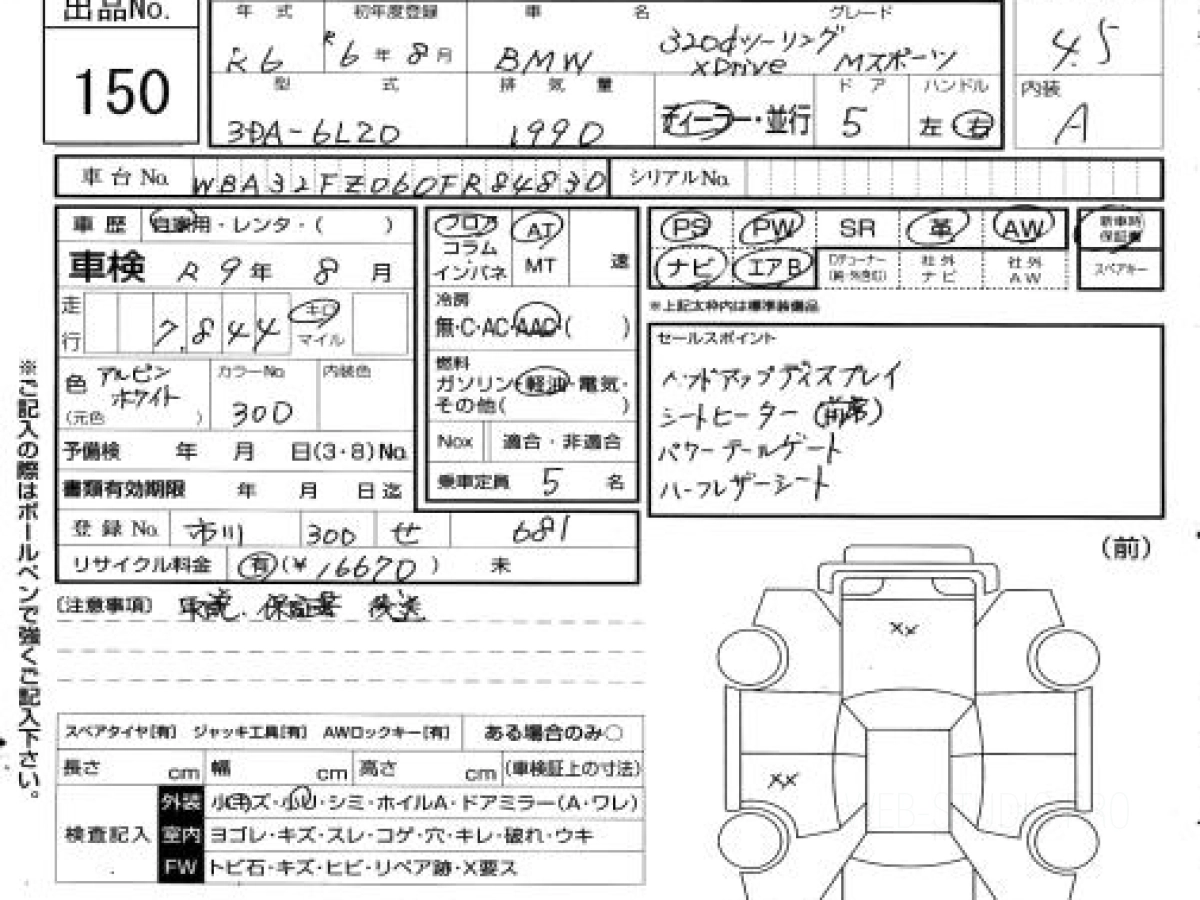 出品No.
150
年式 初年度登録 車名 グレード
R6 R6年8月 BMW 320dツーリング xDrive Mスポーツ
4.5
型式 排気量 ドア ハンドル
3DA-6L20 1990 ディーラー・並行 5 左 右
内装
A
車台No. WBA32FZ060FR84830 シリアルNo.
車歴 自家用・レンタ・( )
車検 R9年 8月
走行 7,844 キロ マイル
色 アルピンホワイト (元色 ) カラーNo 300 内装色
予備検 年 月 日(3・8)No.
書類有効期限 年 月 日迄
登録No. 市川 300 せ 681
リサイクル料金 有(¥16670) 未
フロア コラム インパネ AT MT 速
冷房
無・C・AC・AAC( )
燃料
ガソリン・軽油・電気・
その他( )
Nox 適合・非適合
乗車定員 5 名
PS PW SR 革 AW 新車時保証書
ナビ エアB 社外ナビ 社外AW スペアキー
※上記太枠内は標準装備品
セールスポイント
ヘッドアップディスプレイ
シートヒーター(前席)
パワーテールゲート
ハーフレザーシート
(注意事項) 取説、保証書 後送
※ご記入の際はボールペンで強くご記入下さい。
(前)
XX
XX
スペアタイヤ[有] ジャッキ工具[有] AWロックキー[有] ある場合のみ○
長さ cm 幅 cm 高さ cm (車検証上の寸法)
検査記入
外装 小キズ・小凹・シミ・ホイルA・ドアミラー(A・ワレ)
室内 ヨゴレ・キズ・スレ・コゲ・穴・キレ・破れ・ウキ
FW トビ石・キズ・ヒビ・リペア跡・X要ス